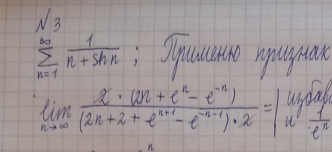 №3
∑_{n=1}^{∞} 1/(n + sh n) ; Применю признак
lim_{n→∞} 2 · (2n + e^n − e^{−n}) / ((2n + 2 + e^{n+1} − e^{−n−1}) · 2) = | избава
и 1/e^n